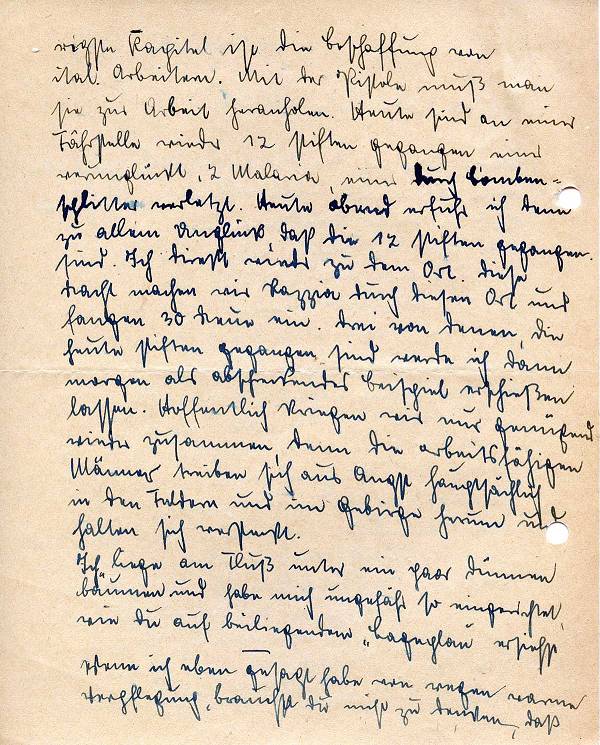 rigste Kapitel ist die Beschaffung von
ital. Arbeitern. Mit der Pistole muß man
sie zur Arbeit heranholen. Heute sind an einer
Fährstelle wieder 12 stiften gegangen einer
verunglückt, 2 Malaria, einer durch Bomben-
splitter verletzt. Heute abend erfuhr ich dann
zu allem Unglück, daß die 12 stiften gegangen.
sind. Ich direkt wieder zu dem Ort. diese
Nacht machen wir Razzia durch diesen Ort und
fangen 30 Neue ein. Drei von denen, die
heute stiften gegangen sind werde ich dann
morgen als abschreckendes Beispiel erschießen
lassen. Hoffentlich kriegen wir nur genügend
wieder zusammen, denn die arbeitsfähigen
Männer treiben sich aus Angst hauptsächlich
in den Feldern und im Gebirge herum und
halten sich versteckt.
Ich liege am Fluß unter ein paar dünnen
Bäumen und habe mich ungefähr so eingerichtet,
wie du auf beiliegendem „Lageplan ersiehst
Wenn ich eben gesagt habe von wegen warme
Verpflegung, brauchst du nicht zu denken, daß